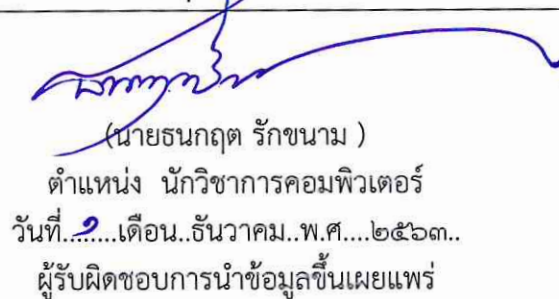 (นายธนกฤต รักขนาม )
ตำแหน่ง นักวิชาการคอมพิวเตอร์
วันที่..๑.....เดือน..ธันวาคม..พ.ศ....๒๕๖๓..
ผู้รับผิดชอบการนำข้อมูลขึ้นเผยแพร่